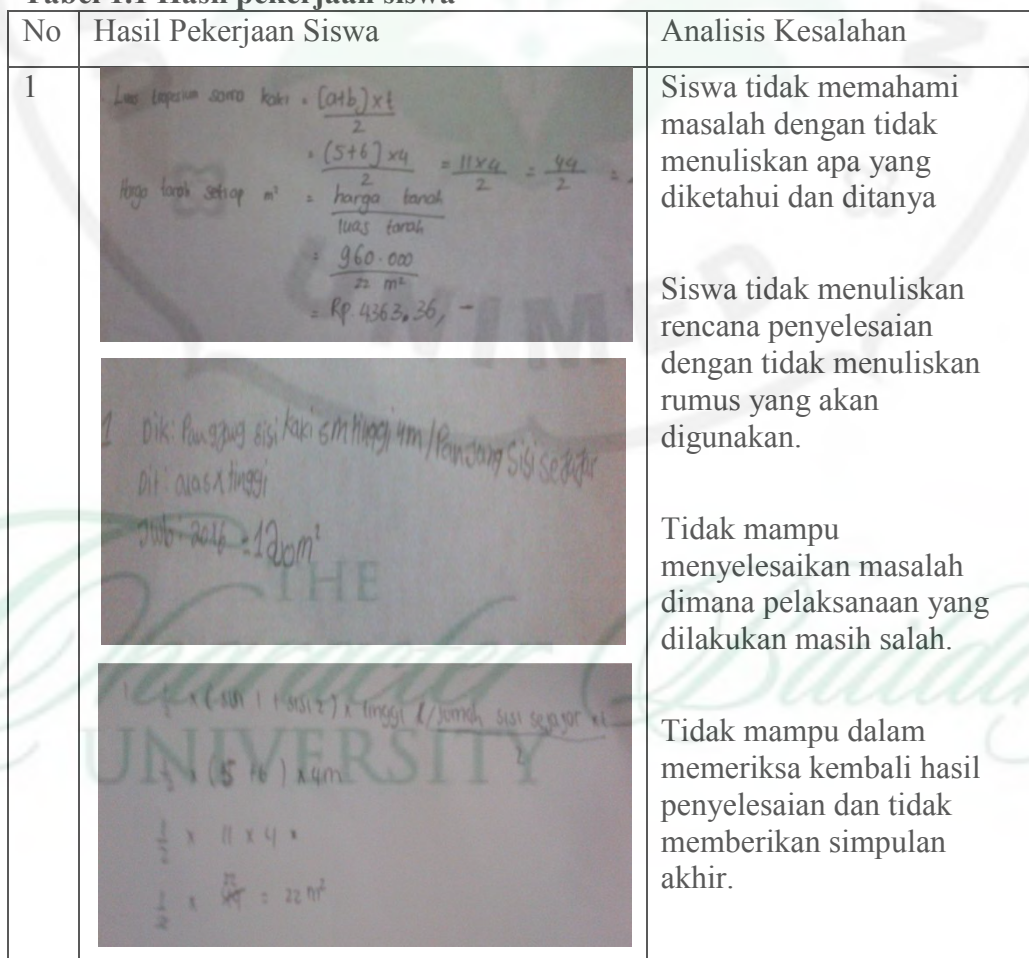 Tabel 1.1 Hasil pekerjaan siswa
No Hasil Pekerjaan Siswa Analisis Kesalahan
1
Luas trapesium sama kaki = (a+b) x t
2
= (5+6) x 4 = 11x4 = 44 =
2 2 2
Harga tanah setiap m² = harga tanah
luas tanah
= 960.000
22 m²
= Rp. 4363,36, -
1 Dik: Panjang sisi kaki 5m tinggi 4m / Panjang sisi sejajar
Dit: x tinggi
Jwb: = 1200m²
x (sisi 1 + sisi 2) x tinggi / Jumlah sisi sejajar x t
2
x (5 + 6) x 4m
1/2 x 11 x 4
1/2 x = 22 m²
Siswa tidak memahami
masalah dengan tidak
menuliskan apa yang
diketahui dan ditanya
Siswa tidak menuliskan
rencana penyelesaian
dengan tidak menuliskan
rumus yang akan
digunakan.
Tidak mampu
menyelesaikan masalah
dimana pelaksanaan yang
dilakukan masih salah.
Tidak mampu dalam
memeriksa kembali hasil
penyelesaian dan tidak
memberikan simpulan
akhir.
UNIMED
THE
Character Buildin
UNIVERSITY